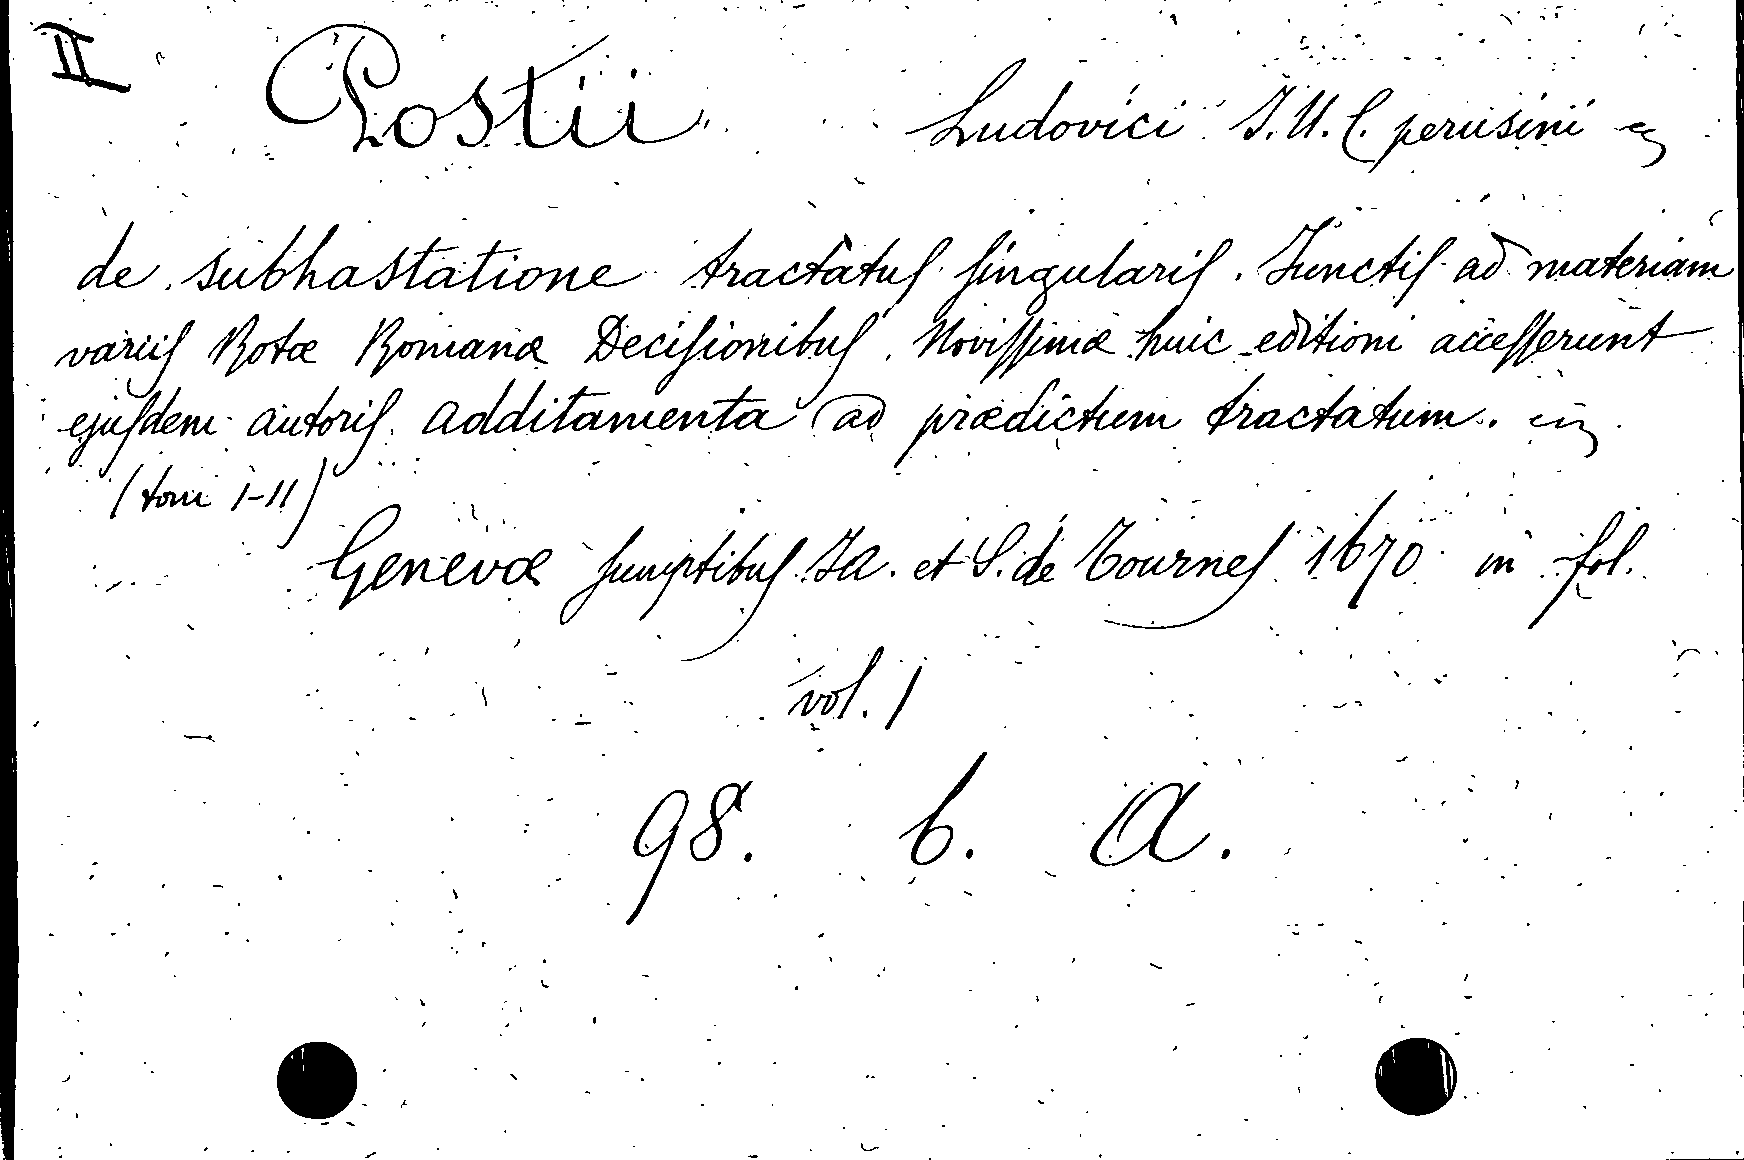 II
Postii Ludovici J.U.C. perusini
de subhastatione tractatus singularis. Junctis ad materiam
variis Rotæ Romanæ Decisionibus. Novissimæ huic editioni accesserunt
ejusdem autoris additamenta ad prædictum tractatum.
(tomi I-II)
Genevæ sumptibus Ja. et S. de Tournes 1670 in fol.
vol. 1
98. b. A.